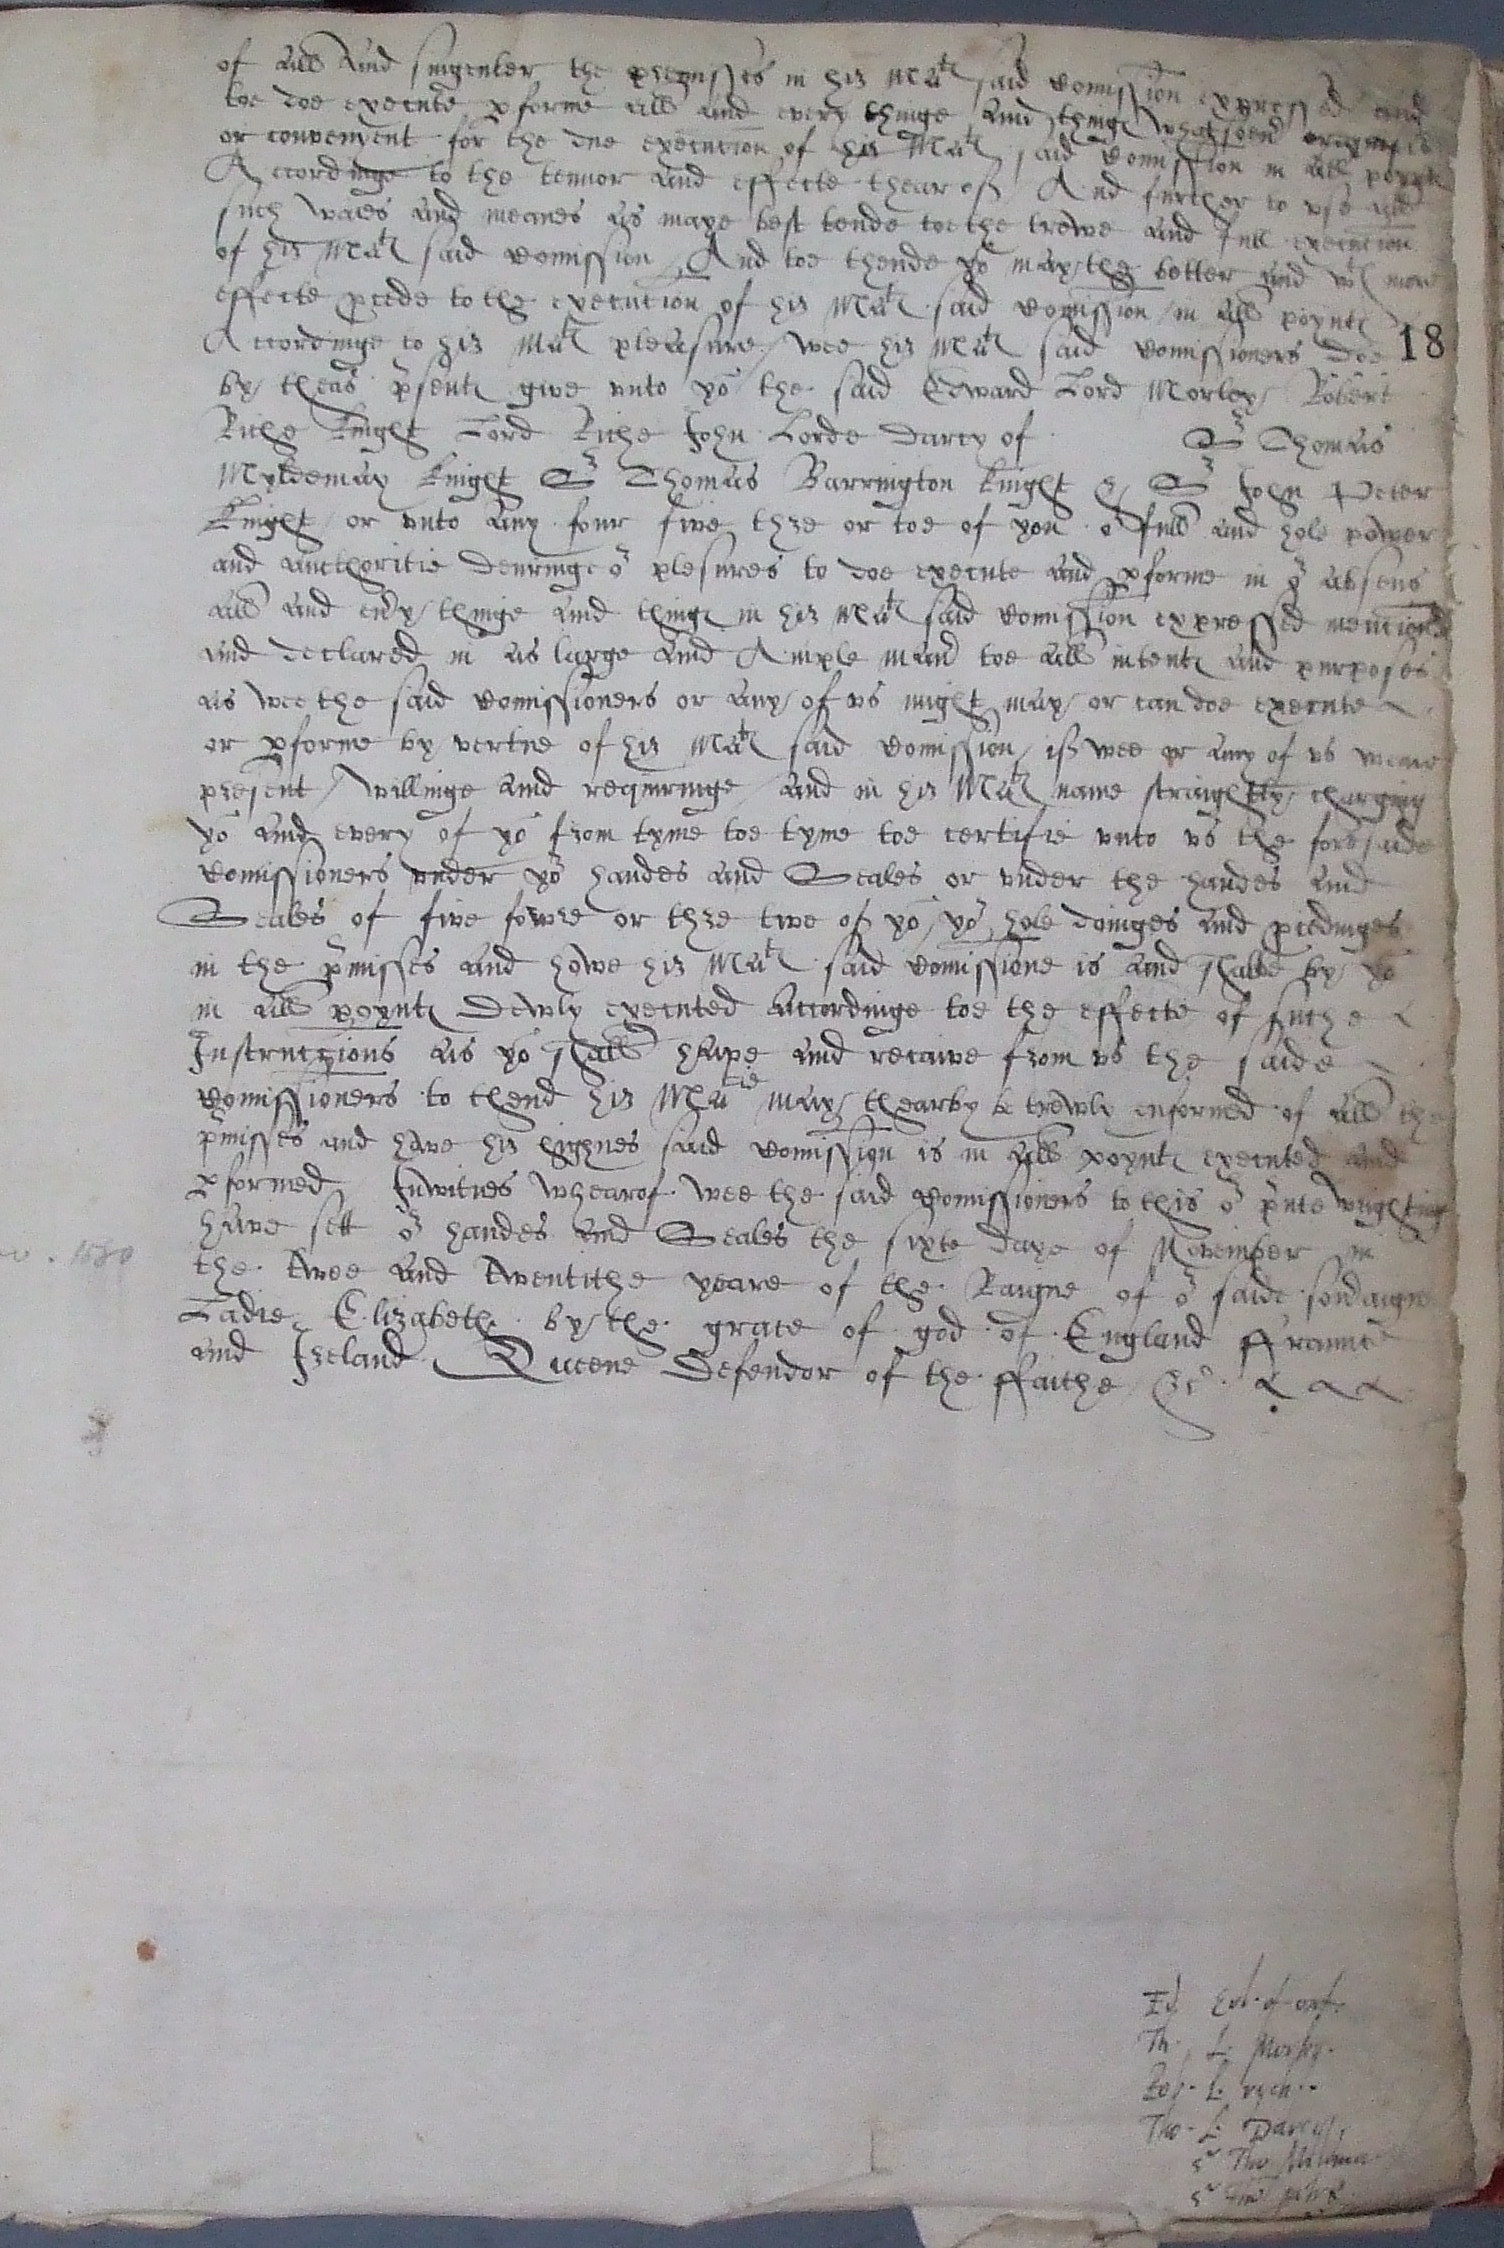 of all And singuler the premisses in his Mats said Comission expressed and
toe doe execute pforme all and every thinge And things whatsoeur requisite
or convenyent for the due execution of his Mats said Comission in all poynts
Accordinge to the tennor and effecte thearof And further to vse all
such waies and meanes as maye best tende toe the trewe and full execution
of his Mats said Comission And toe thende yo may the better and wth more
effecte pcede to the execution of his Mats said Comission in all poynts
Accordinge to his Mats pleasure wee his Mats said Comissioners doe
18
by theas psents give vnto yo the said Edward Lord Morley Robert
Riche knight Lord Riche John Lorde darcy of Sr Thomas
Myldemay knight Sr Thomas Barrington knight & Sr John Peter
knight or vnto Any four five thre or toe of you or full and hole power
and authoritie deuringe or plesures to doe execute and pforme in or absens
all and eury thinge And things in his Mats said Comission expressed mencioned
and declared in as large and Ample manr toe all intents and purposes
as wee the said Comissioners or any of vs might may or can doe execute
or pforme by vertue of his Mats said Comission if wee or any of vs weare
present willinge and requiringe and in his Mats name straightly charging
yo and every of yo from tyme toe tyme toe certifie vnto vs the forsaide
Comissioners vnder yor handes and Seales or vnder the handes and
Seales of five fowre or thre twe of yo yor hole doinges and pcedinges
in the pmisses and howe his Mats said Comissione is and shalbe by yo
in all poynts dewly executed Accordinge toe the effecte of suche
Instructions as yo shall have and receive from vs the saide
Comissioners to thend his Matie may thearby be trewly enformed of all the
pmisses and howe his highnes said Comission is in all poynts executed and
pformed Inwitnes whearof wee the said Comissioners to this or pnte wrighting
have sett or handes and Seales the sixte daye of November in
the twee and twentithe yeare of the Raigne of or saide souraigne
Ladie Elizabeth by the grace of god of England ffraunce
and Ireland Queene defendor of the ffaithe &c
1580
Ed Erl of oxf.
Th. L. Morley.
Rob. L. rych.
Tho. L. Darcy
Sr Tho Mildma